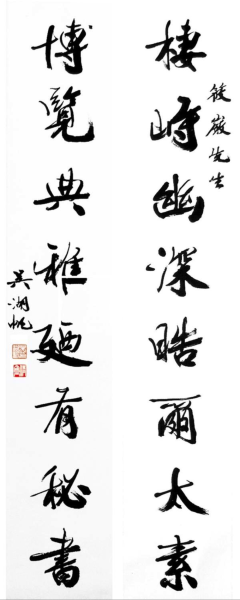 棲峙幽深晧爾太素
先生
博覽典雅廼有秘書
吳湖帆